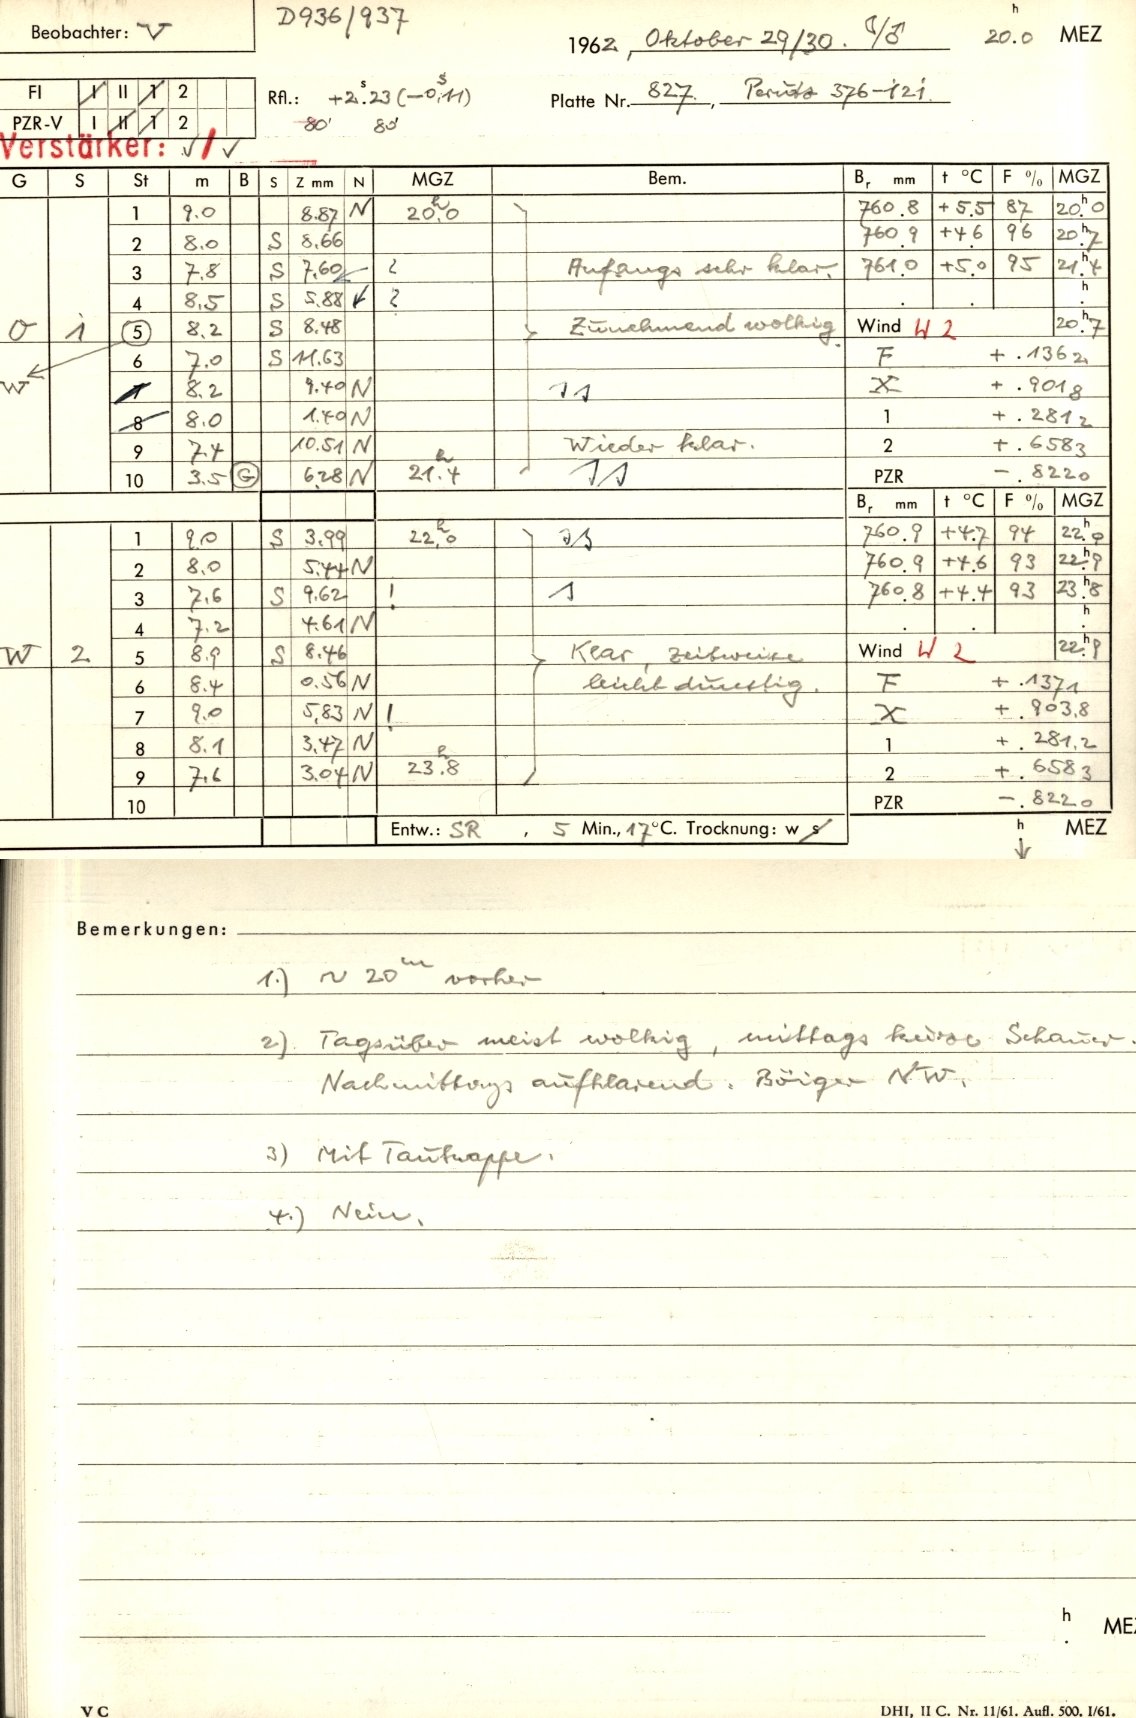 D936/937
Beobachter: V
1962, Oktober 29/30. 20.0 h MEZ
FI I II 1 2
PZR-V I II 1 2
Rfl.: +2.23 (−0.11)
80' 80'
Platte Nr. 827, Perutz 376-121
Verstärker:
G S St m B S Z mm N MGZ Bem. Br mm t °C F % MGZ
1 9.0 8.87 N 20.0 h 760.8 +5.5 87 20.0 h
2 8.0 S 8.66 760.9 +4.6 96 20.7 h
3 7.8 S 7.60 ? Anfangs sehr klar. 761.0 +5.0 95 21.4 h
4 8.5 S 5.88 ? . . h .
O 1 5 8.2 S 8.48 Zunehmend wolkig. Wind W 2 20.7 h
6 7.0 S 11.63 F + .1362
W 7 8.2 9.40 N X + .9018
8 8.0 1.40 N 1 + .2812
9 7.4 10.51 N Wieder klar. 2 + .6583
10 3.5 G 6.28 N 21.4 h PZR − .8220
Br mm t °C F % MGZ
1 9.0 S 3.99 22.0 h 760.9 +4.7 94 22.0 h
2 8.0 5.44 N 760.9 +4.6 93 22.9 h
3 7.6 S 9.62 ! 760.8 +4.4 93 23.8 h
4 7.2 4.61 N . . h .
W 2 5 8.9 S 8.46 Klar, zeitweise Wind W 2 22.9 h
6 8.4 0.56 N leicht dunstig. F + .1371
7 9.0 5.83 N ! X + .9038
8 8.1 3.47 N 1 + .2812
9 7.6 3.04 N 23.8 h 2 + .6583
10 PZR − .8220
Entw.: SR, 5 Min., 17°C. Trocknung: w s h MEZ
Bemerkungen:
1.) ~ 20 m vorher
2.) Tagsüber meist wolkig, mittags kurze Schauer.
Nachmittags aufklarend. Böiger NW.
3) Mit Taukappe.
4.) Nein.
h . MEZ
VC
DHI, II C. Nr. 11/61. Aufl. 500. I/61.